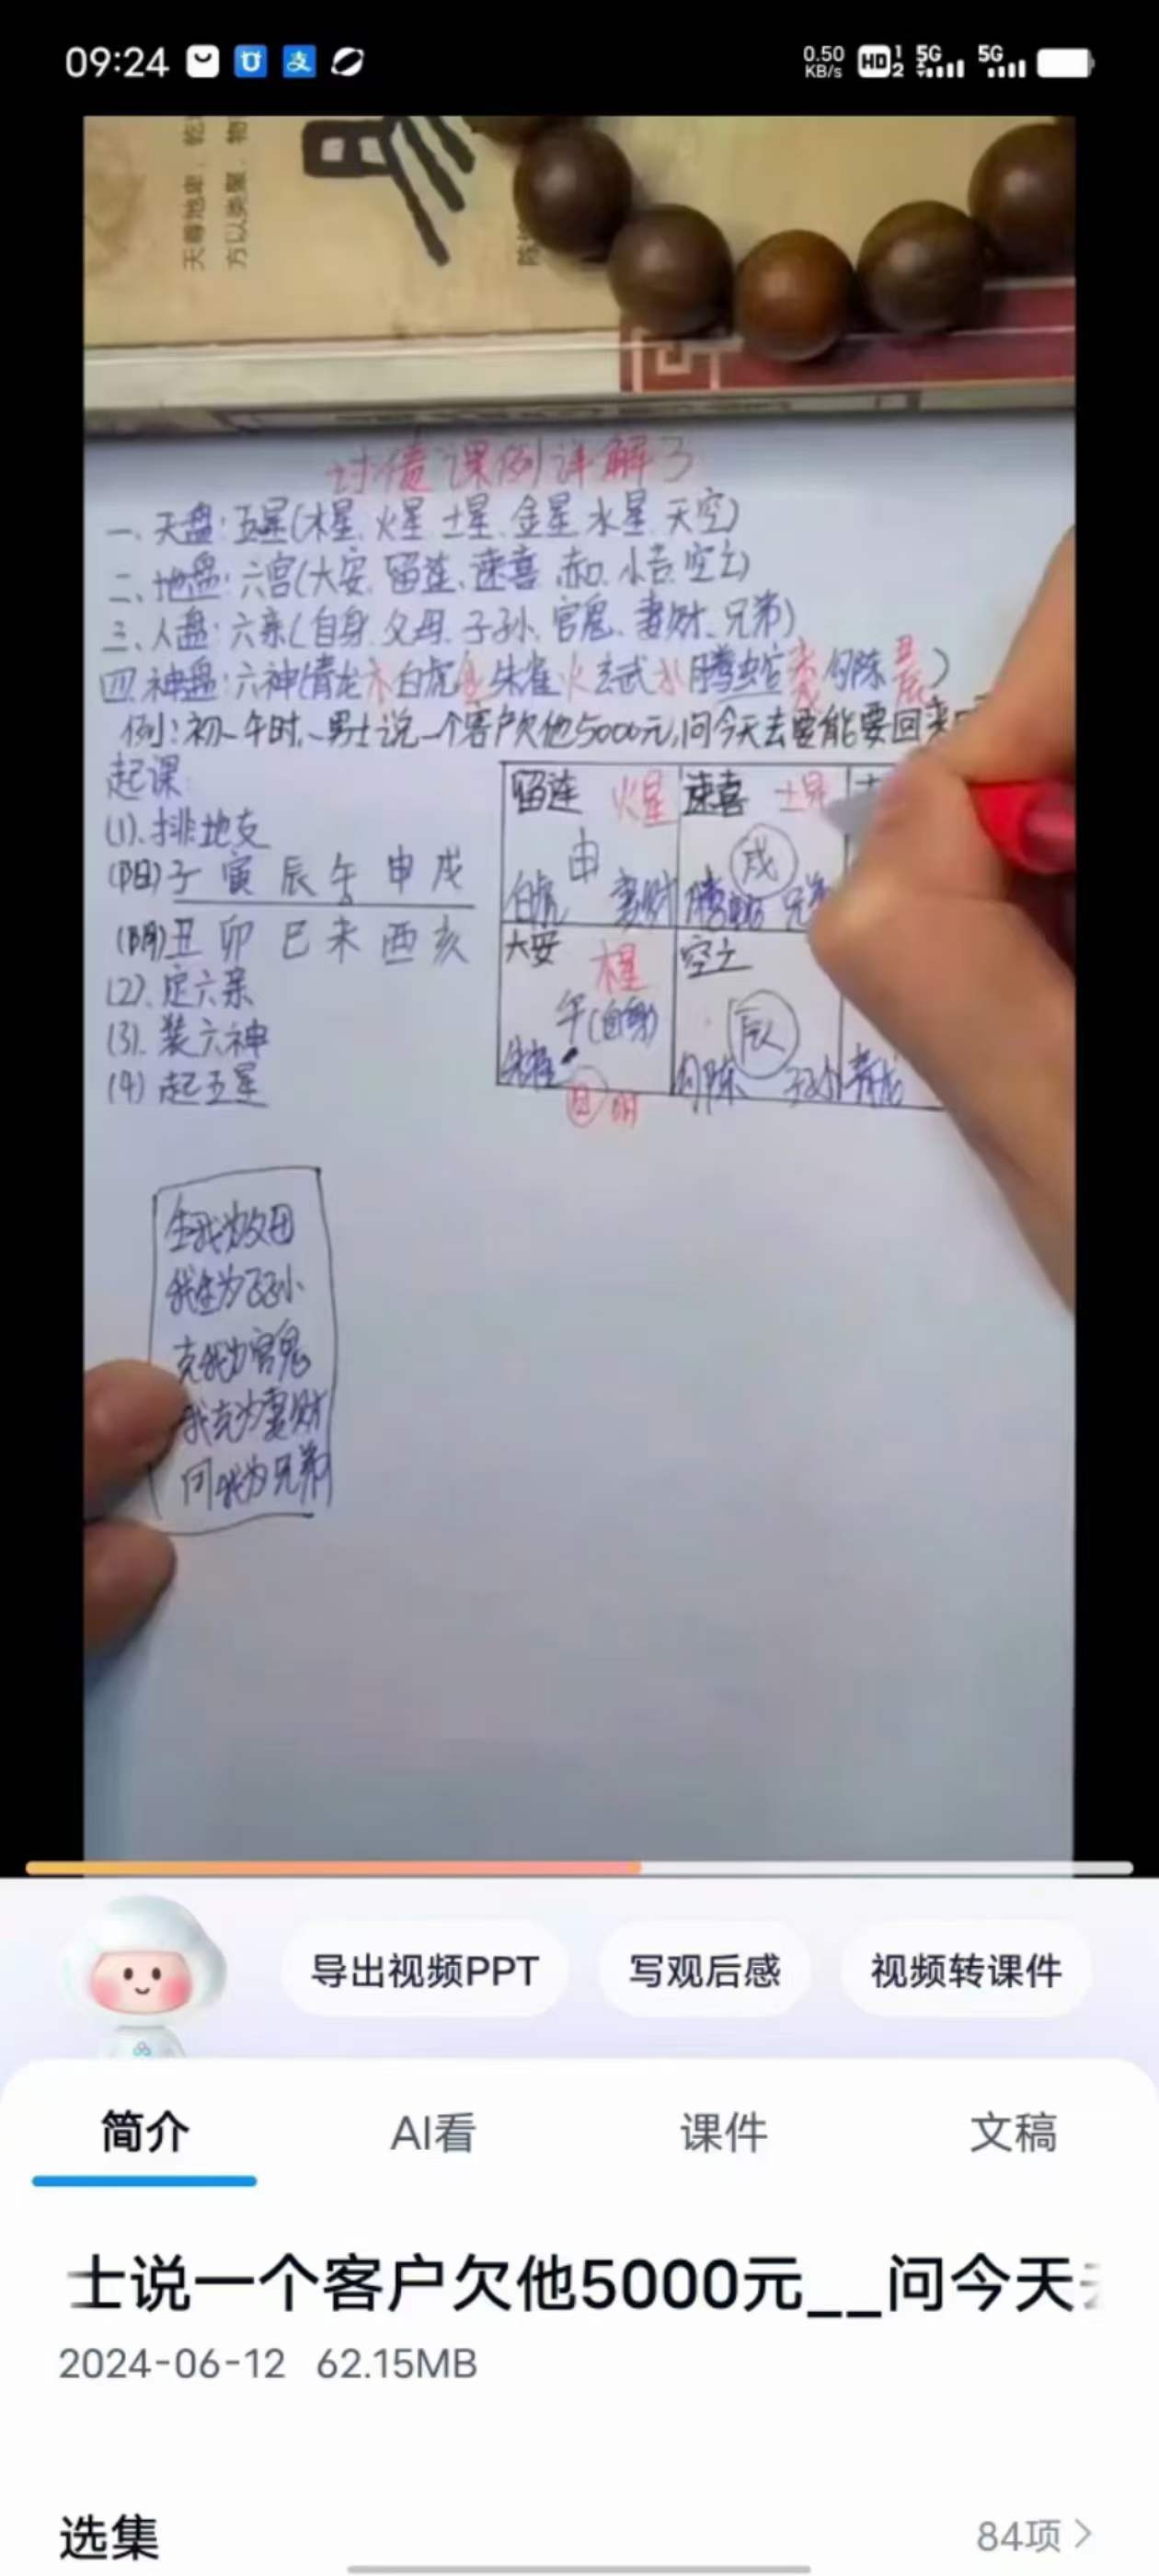 09:24
0.50 KB/s HD 1 2 5G 5G
天尊地卑，乾
方以类聚，物
讨债课例详解3
一、天盘:五星(木星、火星、土星、金星、水星、天空)
二、地盘:六宫(大安、留连、速喜、赤口、小吉、空亡)
三、人盘:六亲(自身、父母、子孙、官鬼、妻财、兄弟)
四、神盘:六神(青龙木白虎金朱雀火玄武水腾蛇 勾陈 )
例:初一午时,一男士说一个客户欠他5000元,问今天去要能要回来
起课
(1)、排地支
(阳)子 寅 辰 午 申 戌
(阴)丑 卯 巳 未 酉 亥
(2)、定六亲
(3)、装六神
(4)、起五星
留连 火星
申
白虎 妻财
速喜 土星
戌
腾蛇 兄弟
大安 木星
午(自身)
朱雀
空亡
辰
勾陈 子孙
青龙
阳 阴
生我为父母
我生为子孙
克我为官鬼
我克为妻财
同我为兄弟
导出视频PPT 写观后感 视频转课件
简介 AI看 课件 文稿
士说一个客户欠他5000元__问今天
2024-06-12 62.15MB
选集 84项 >